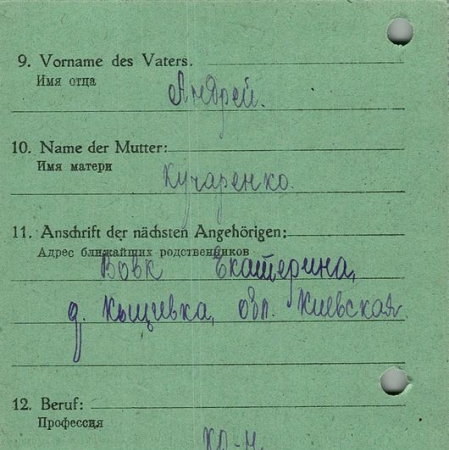 9. Vorname des Vaters.
Имя отца
Андрей.
10. Name der Mutter:
Имя матери
Кучаренко.
11. Anschrift der nächsten Angehörigen:
Адрес ближайших родственников
Вовк Екатерина,
д. обл. Киевская
12. Beruf:
Профессия